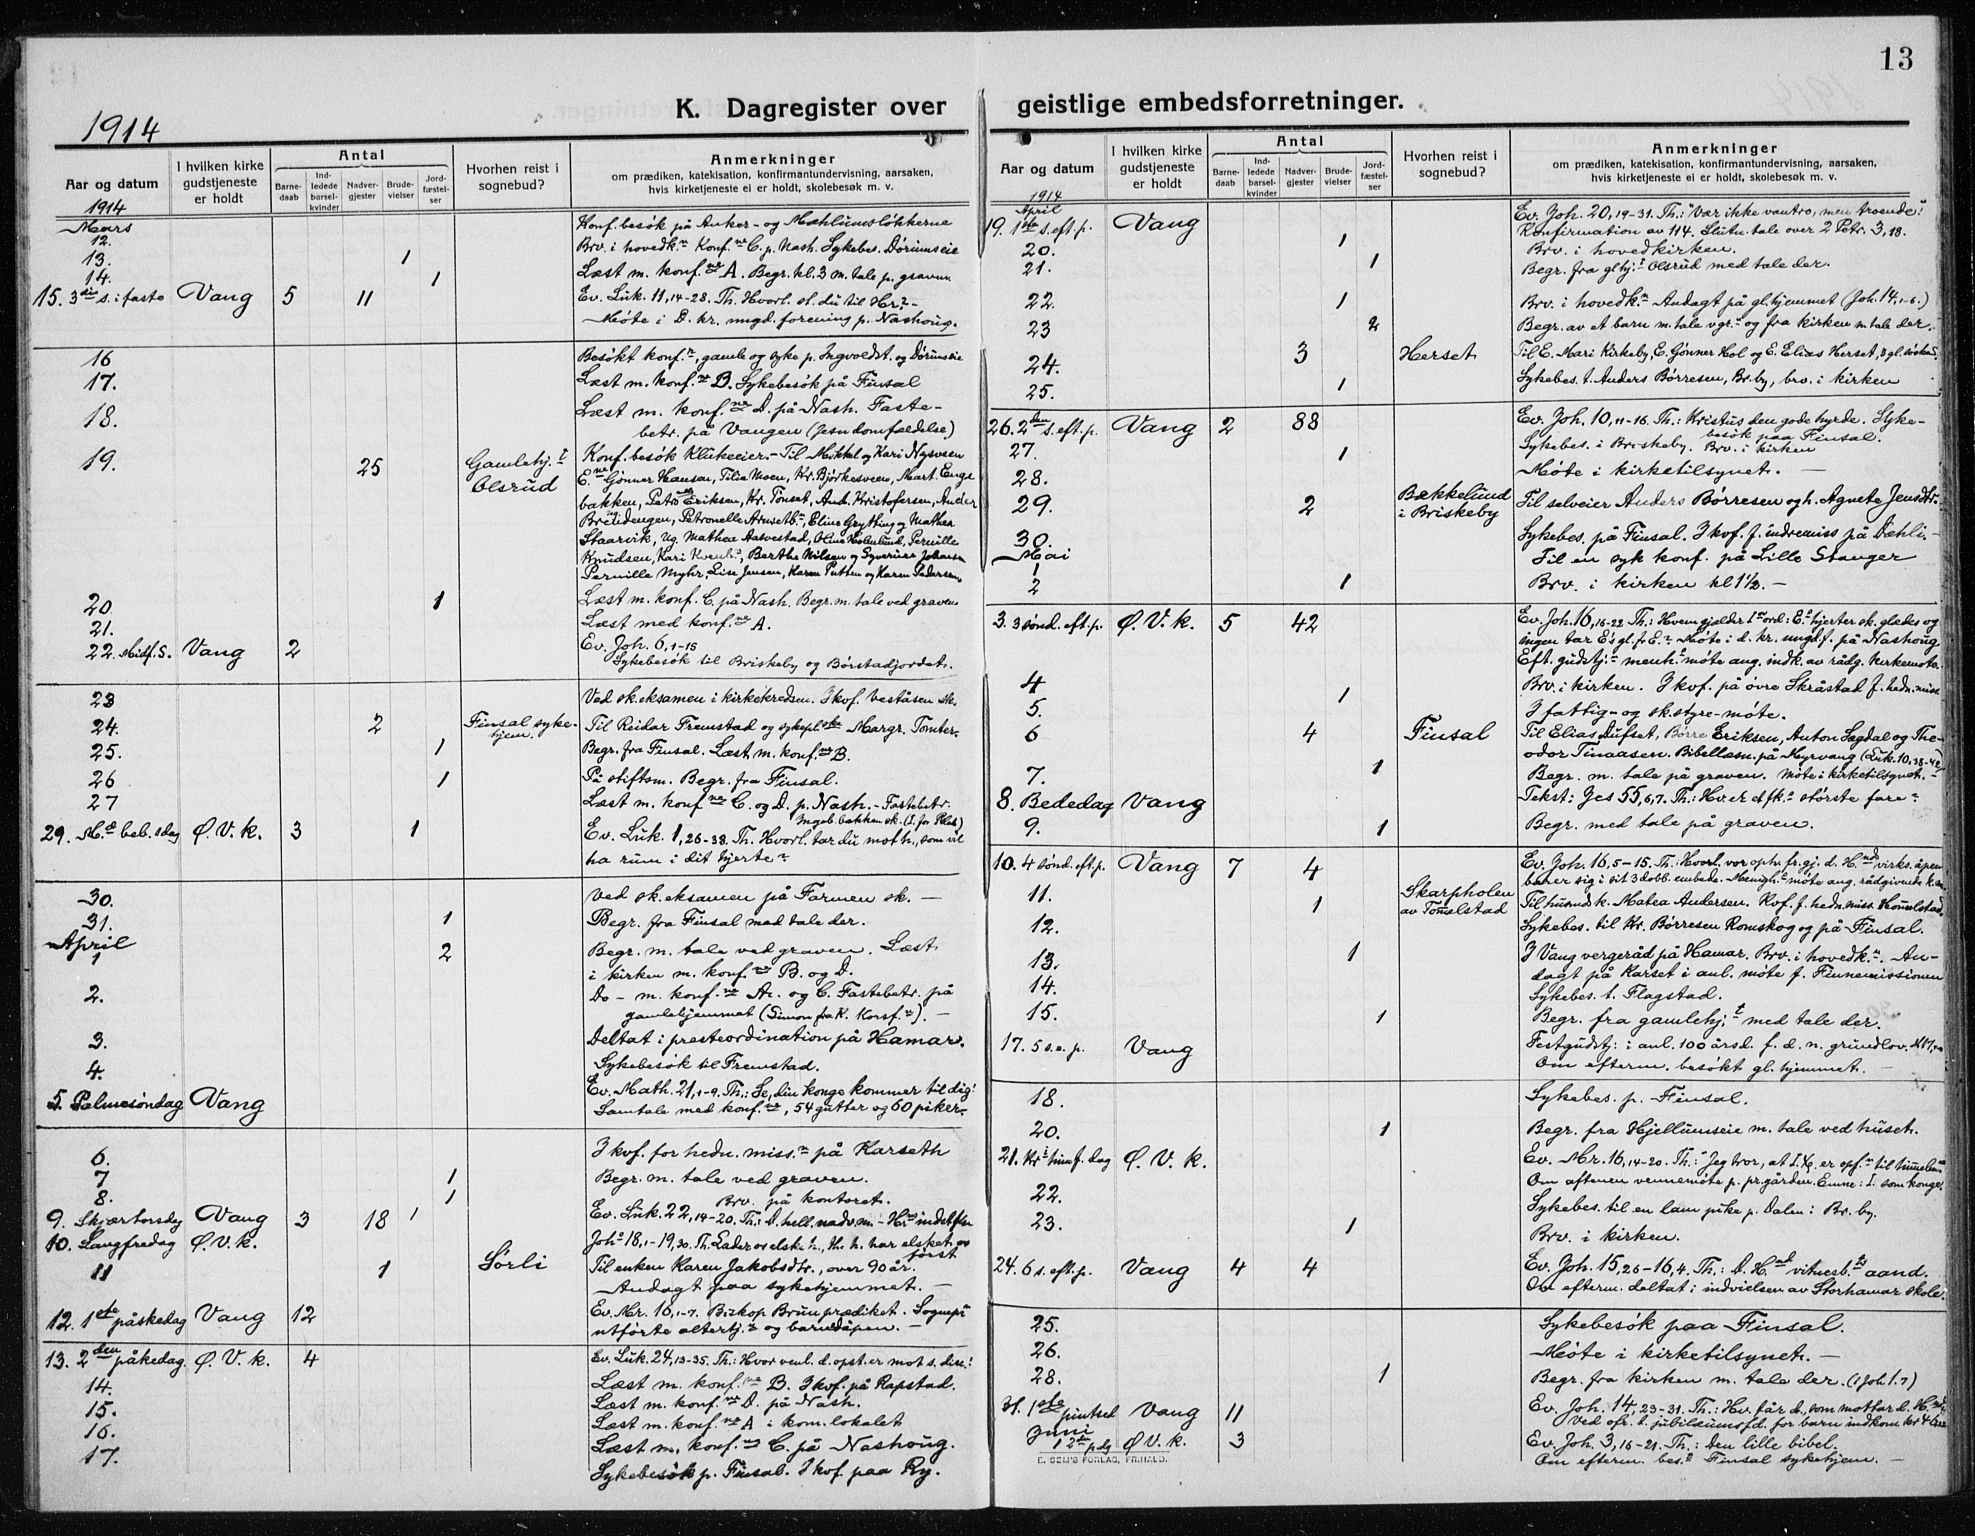 13
K. Dagregister over geistlige embedsforretninger.
1914
Aar og datum
I hvilken kirke gudstjeneste er holdt
Antal
Barnedaab
Indledede barselkvinder
Nadvergjester
Brudevielser
Jordfæstelser
Hvorhen reist i sognebud?
Anmerkninger
om prædiken, katekisation, konfirmantundervisning, aarsaken,
hvis kirketjeneste ei er holdt, skolebesøk m. v.
1914
Mars
12. Konf. besøk på Anker- og Mæhlumsløkkerne
13. 1 Brv. i hovedk. Konf. C. p. Nash. Sykebes. Dørumseie
14. 1 Læst m. konf. A. Begr. kl. 3 m. tale p. graven
15. 3die s. i faste Vang 5 11 Ev. Luk. 11, 14-28. Th. Hvorl. st. du til Hr?-
Møte i D. kr. ungd. forening p. Nashoug.
16 Besøkt konf., gamle og syke p. Ingvoldst. og Dørumseie
17. Læst m. konf. B. Sykebesøk på Finsal
18. Læst m. konf. D. på Nash. Faste-
betr. på Vangen (Jesu domfældelse)
19. 25 Gamlehj. Olsrud Konf. besøk Klukeeier. - Til Mikkel og Kari Næsveen
E. Gønner Hansen, Tilia Moen, Kr. Bjørkesveen, Mart. Enge
bakken, Petro Eriksen, Kr. Tønset, And. Kristofersen, Ander
Breidengen, Petronelle Arnsetb., Eline Grytting og Mathea
Staarvik, ug. Mathea Aasvestad, Oline Holmlund, Pernille
Knudsen, Kari, Berthe Nilsen og Syverine Johans
Pernille Myhr, Lise Jensen, Karen Putten og Karen Pedersen
20 1 Læst m. konf. C. på Nash. Begr. m. tale ved graven
21. Læst med konf. A.
22. Midf. S. Vang 2 Ev. Joh. 6, 1-15
Sykebesøk til Briskeby og Børstadjordet.
23 Ved sk. eksamen i kirkekredsen. I kof. beståsen sk.
24. 2 Finsal sykehjem. Til Reidar Fremstad og sykepl. Margr. Tomter.
25. 1 Begr. fra Finsal. Læst m. konf. B.
26 1 På stiftsm. Begr. fra Finsal.
27 Læst m. konf. C. og D. p. Nash. - Fastebetr.
Ingeb. bakken sk. (I. for Pilat)
29. M. beb. sdag Ø. V. k. 3 1 Ev. Luk. 1, 26-38. Th. Hvorl. tar du mot h., som vil
ha rum i dit hjerte
30. Ved sk. eksamen på Farmen sk. -
31. 1 Begr. fra Finsal med tale der.
April
1 2 Begr. m. tale ved graven. Læst
i kirken m. konf. B. og D.
2. Do - m. konf. A. og C. Fastebetr. på
gamlehjemmet (Simon fra K. Korsf.). -
3. Deltat i presteordination på Hamar.
4. Sykebesøk til Fremstad.
5. Palmesøndag Vang Ev. Math. 21, 1-9. Th.: Se, din konge kommer til dig!
Samtale med konf., 54 gutter og 60 piker-
6. I kof. for hedn. miss. på Karseth
7 1 Begr. m. tale ved graven.
8. 1 Brv. på kontoret.
9. Skjærtorsdag Vang 3 18 1 Ev. Luk. 22, 14-20. Th.: D. hell. nadv. m. - Hr. indstiftn
10. Langfredag Ø. V. k. Joh. 18, 1-19, 30. Th. Lader os elske h., th. h. har elsket os først
11 1 Sørli Til enken Karen Jakobsdtr., over 90 år.
Andagt paa sykehjemmet. -
12. 1ste påskedag Vang 12 Ev. Mr. 16, 1-7. Biskop Brun prædiket. Sognepr
utførte altertj. og barnedåpen. -
13. 2den påkedag Ø. V. k. 4 Ev. Luk. 24, 13-35. Th.: Hvor venl. d. opst. er mot s. disc.!
14. Læst m. konf. B. I kof. på Rapstad.
15. Læst m. konf. D. på Nash.
16. Læst m. konf. A i kom. lokalet
17. Læst m. konf. C. på Nashoug.
Sykebesøk p. Finsal. I kof. paa Ry.
Aar og datum
I hvilken kirke gudstjeneste er holdt
Antal
Barnedaab
Indledede barselkvinder
Nadvergjester
Brudevielser
Jordfæstelser
Hvorhen reist i sognebud?
Anmerkninger
om prædiken, katekisation, konfirmantundervisning, aarsaken,
hvis kirketjeneste ei er holdt, skolebesøk m. v.
1914
April
19. 1ste s. eft. p. Vang Ev. Joh. 20, 19-31. Th.: "Vær ikke vantro, men troende"!
Konfirmation av 114. Slutn. tale over 2 Petr. 3, 18.
20. 1 Brv. i hovedkirken.
21. 1 Begr. fra glhj. Olsrud med tale der.
22. 1 Brv. i hovedk. Andagt på gl. hjemmet (Joh. 14, 1-6.)
23 2 Begr. av et barn m. tale v gr. og fra kirken m. tale der.
24. 3 Herset Til E. Mari Kirkeby, E. Gønner Hol og E. Elias Herset, 3 gl. søsken.
25. 1 Sykebes. t. Anders Børresen, Br. by, brv. i kirken
26. 2den s. eft. p. Vang 2 88 Ev. Joh. 10, 11-16. Th.: Kristus den gode hyrde. Syke-
besøk paa Finsal.
27. 1 Sykebes. i Briskeby. Brv. i kirken
28. Møte i kirketilsynet. -
29. 2 Bækkelund i Briskeby Til selveier Anders Børresen og h. Agnete Jensdtr.
30. Sykebes. på Finsal. I kof. f. indremiss på Dæhli. -
Mai
1 Til en syk konf. på Lille Stanger
2 1 Brv. i kirken kl 1½. -
3. 3 sønd. eft. p. Ø. V. k. 5 42 Ev. Joh. 16, 16-22 Th.: Hvem gjælder ord: E. hjerter sk. glædes og
ingen tar E's gl. fr. E. Møte i d. kr. ungd. f. på Nashoug
Eft. gudstj. menh. møte ang. indk. av rådg. kirkemøte.
4 1 Brv. i kirken. I kof. på øvre Skråstad f. hedn. miss.
5. I fattig- og sk. styre-møte.
6 4 Finsal Til Elias Aufset, Børre Eriksen, Anton Sagdal og The-
odor Tinaasen. Bibellæsn. på Myrvang (Luk. 10, 38-42)
7. 1 Begr. m. tale på graven. Møte i kirketilsynet. -
8. Bededag Vang Tekst: Jes 55, 6,7. Th.: Hv. er et fk. største fare
9. 1 Begr. med tale på graven.
10. 4 sønd. eft. p. Vang 7 4 Ev. Joh. 16, 5-15. Th.: Hvorl. vor oph. fr. gj. d. H. virks. åpen
barer sig i sit 3 dobb. embede. Menigh. møte ang. rådgivende k.
11. 1 Skarpholen av Tommelstad Til husmdk. Matea Andersen. Kof. f. hedn. miss. Hommelstad
12. Sykebes. til Kr. Børresen Romskog og på Finsal.
13. 1 I Vang vergeråd på Hamar. Brv. i hovedk. An-
14. dagt på Karset i anl. møte f. Finnemissionen
Sykebes. t. Flagstad.
15. 1 Begr. fra gamlehj. med tale der.
17. 5 s. e. p. Vang Festgudstj. i anl. 100 årsd. f. d. n. grundlov.
Om efterm. besøkt gl. hjemmet. -
18. Sykebes. p. Finsal.
20. 1 Begr. fra Hjellumseie m. tale ved huset.
21. Kr. himf. dag Ø. V. k. Ev. Mr. 16, 14-20. Th.: "Jeg tror, at I. K. er opf. til himmelen"
Om aftenen vennemøte p. pr. gården. Emne: I. som konge.
22. Sykebes. til en lam pike p. Dalen: Br. by.
23. 1 Brv. i kirken.
24. 6 s. eft. p. Vang 4 4 Ev. Joh. 15, 26-16, 4. Th.: D. H. vitnesb. aand.
Om efterm. deltat i indvielsen av Storhamar skole.
25. Sykebesøk paa Finsal.
26. Møte i kirketilsynet. -
28. 1 Begr. fra kirken m. tale der. (1 Joh 1. 7)
31. 1ste pintsed Vang 11 Ev. Joh. 14, 23-31. Th.: Hv. får d., som mottar d. H.
Ved of. t. jubilæumsfd. for barn indkom kr
Juni
1 2den p. dg Ø. V. k. 3 Ev. Joh. 3, 16-21. Th.: Den lille bibel.
Om efterm. bes. Finsal sykehjem. -
E. SEM'S FORLAG, FR.HALD.